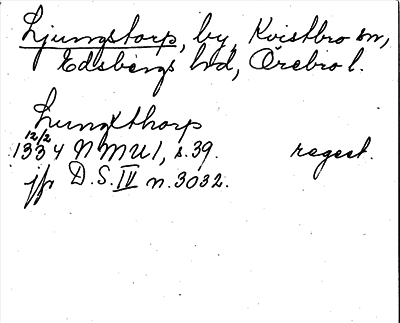 Ljungstorp, by, Kvistbro sn,
Edsbergs hd, Örebro l.
Lungxthorp
12/2
1334 NMU 1, s. 39. regest.
jfr D.S. IV n. 3032.